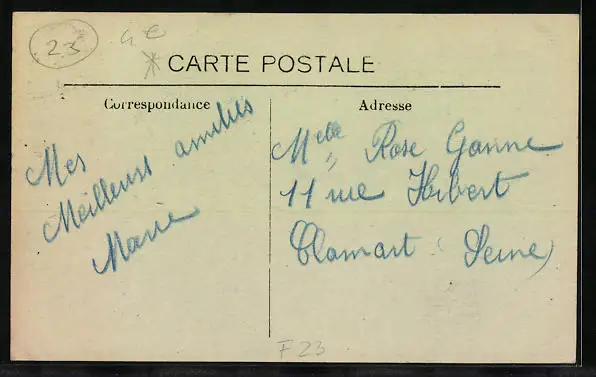 23
4 €
* CARTE POSTALE
Correspondance
Mes
Meilleurs amitiés
Marie
Adresse
Melle Rose Ganne
11 rue Hébert
Clamart (Seine)
F 23